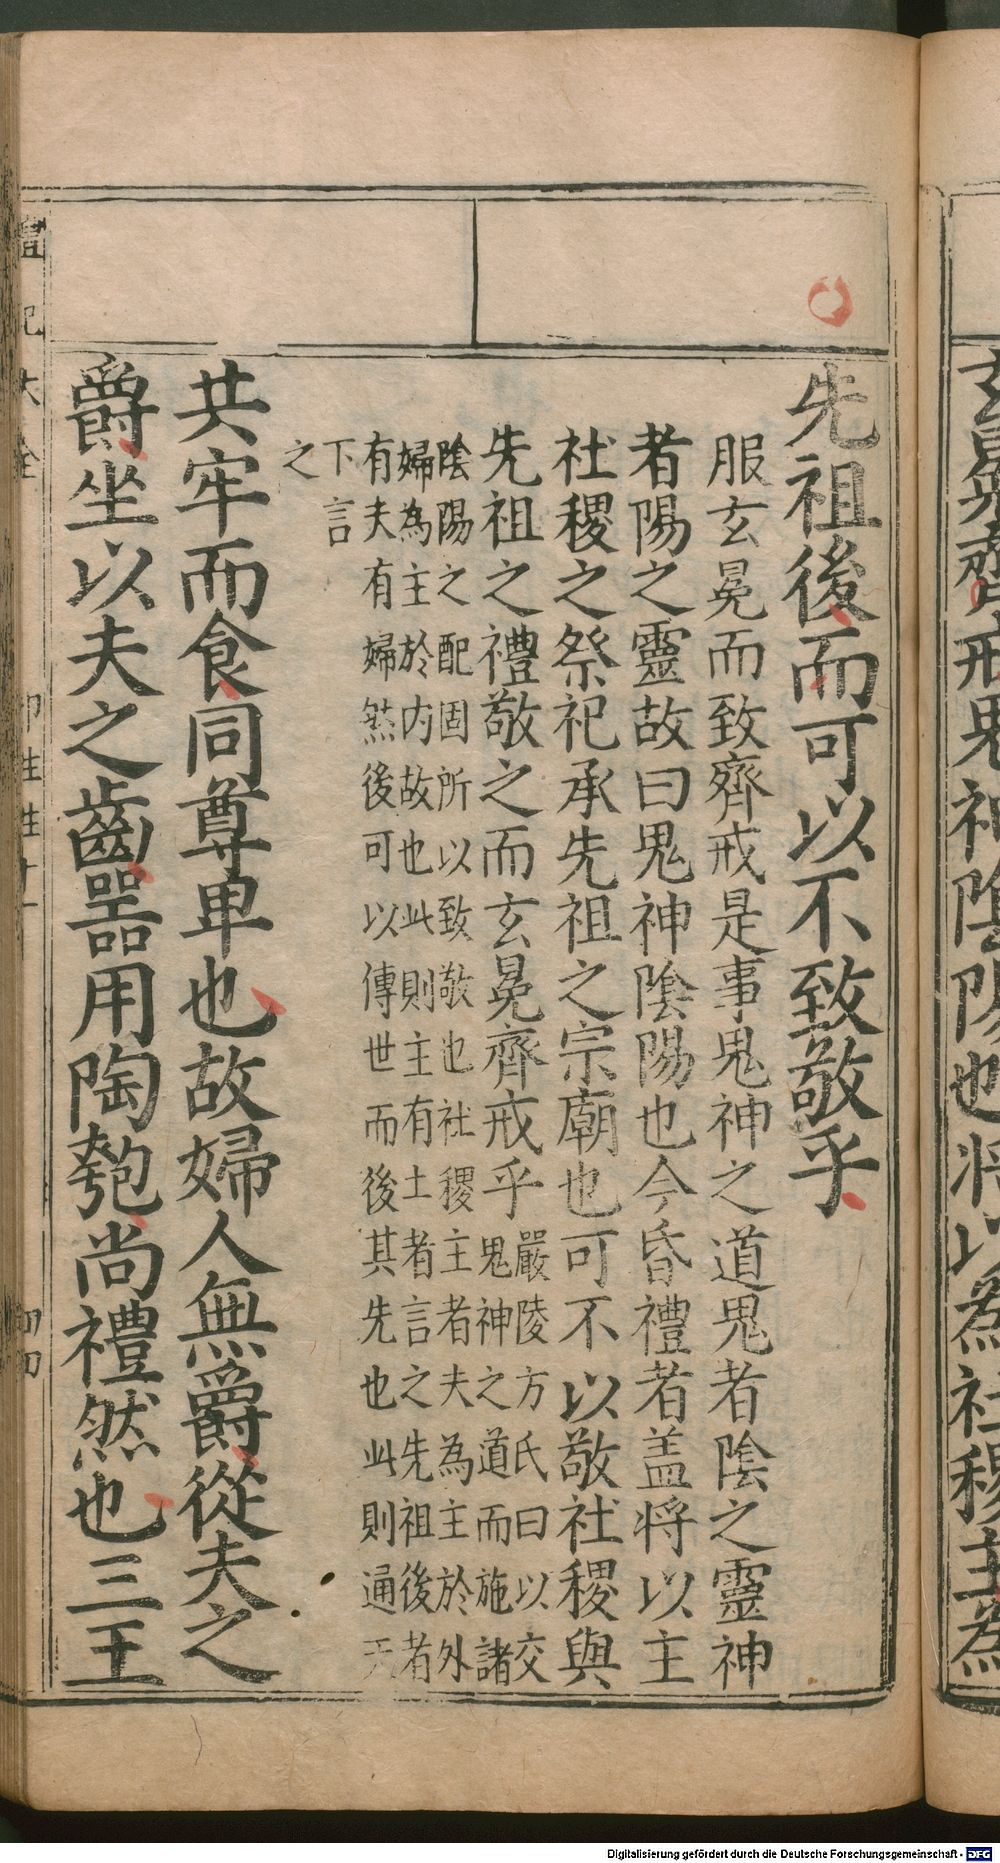 玄冕齊戒鬼神陰陽也將以為社稷主為
先祖後而可以不致敬乎
服玄冕而致齊戒是事鬼神之道鬼者陰之靈神
者陽之靈故曰鬼神陰陽也今昏禮者盖將以主
社稷之祭祀承先祖之宗廟也可不以敬社稷與
先祖之禮敬之而玄冕齊戒乎
嚴陵方氏曰以交
鬼神之道而施諸
陰陽之配固所以致敬也社稷主者夫為主於外
婦為主於内故也此則主有土者言之先祖後者
有夫有婦然後可以傳世而後其先也此則通天
下言
之
共牢而食同尊卑也故婦人無爵從夫之
爵坐以夫之齒器用陶匏尚禮然也三王
禮記大全
Digitalisierung gefördert durch die Deutsche Forschungsgemeinschaft - DFG